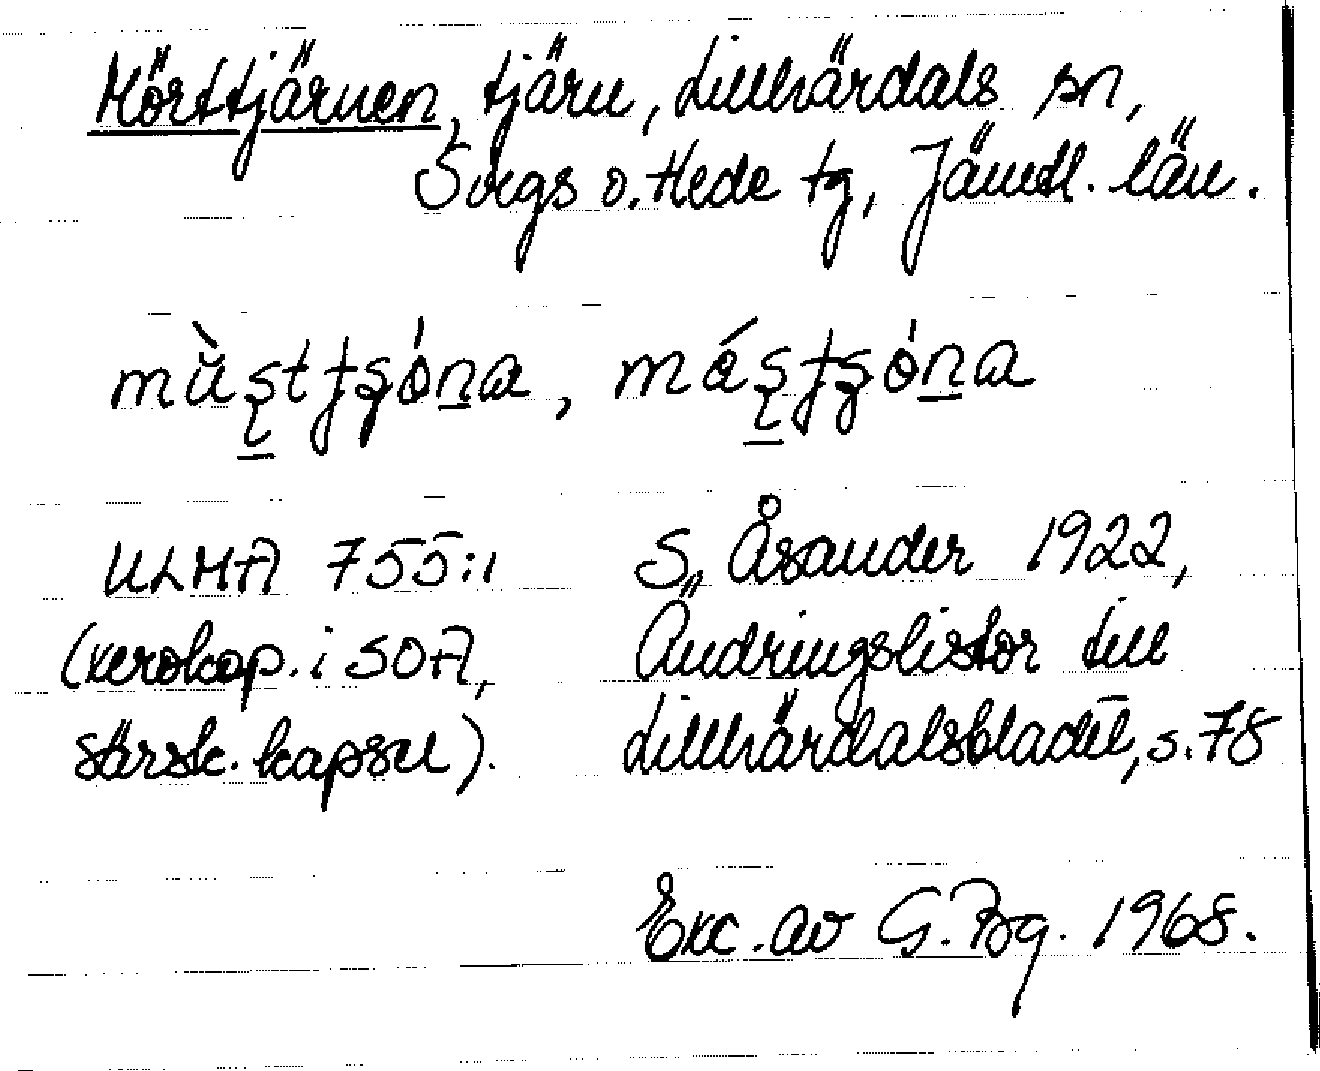 Mörttjärnen, tjärn, Lillhärdals sn,
Svegs o. Hede tg, Jämtl. län.
ULMA 755:1 S. Åsander 1922,
(xerokop. i SOA, Ändringslistor till
särsk. kapsel). Lillhärdalsbladet, s. 78
Exc. av G. Bg. 1968.